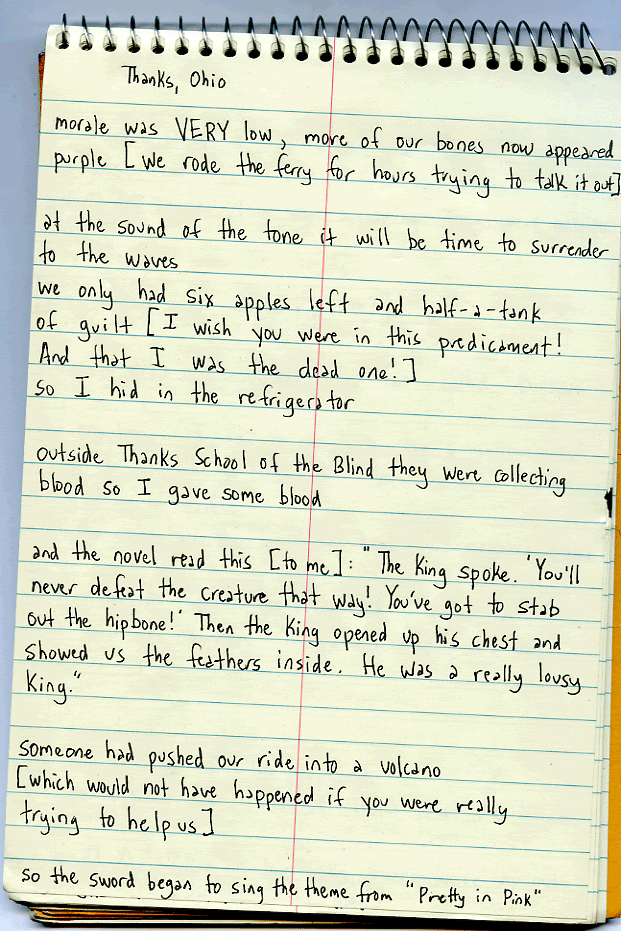 Thanks, Ohio
morale was VERY low, more of our bones now appeared
purple [we rode the ferry for hours trying to talk it out]
at the sound of the tone it will be time to surrender
to the waves
we only had six apples left and half-a-tank
of guilt [I wish you were in this predicament!
And that I was the dead one!]
so I hid in the refrigerator
outside Thanks School of the Blind they were collecting
blood so I gave some blood
and the novel read this [to me]: "The King spoke. 'You'll
never defeat the creature that way! You've got to stab
out the hipbone!' Then the King opened up his chest and
showed us the feathers inside. He was a really lousy
King."
someone had pushed our ride into a volcano
[which would not have happened if you were really
trying to help us]
so the sword began to sing the theme from "Pretty in Pink"